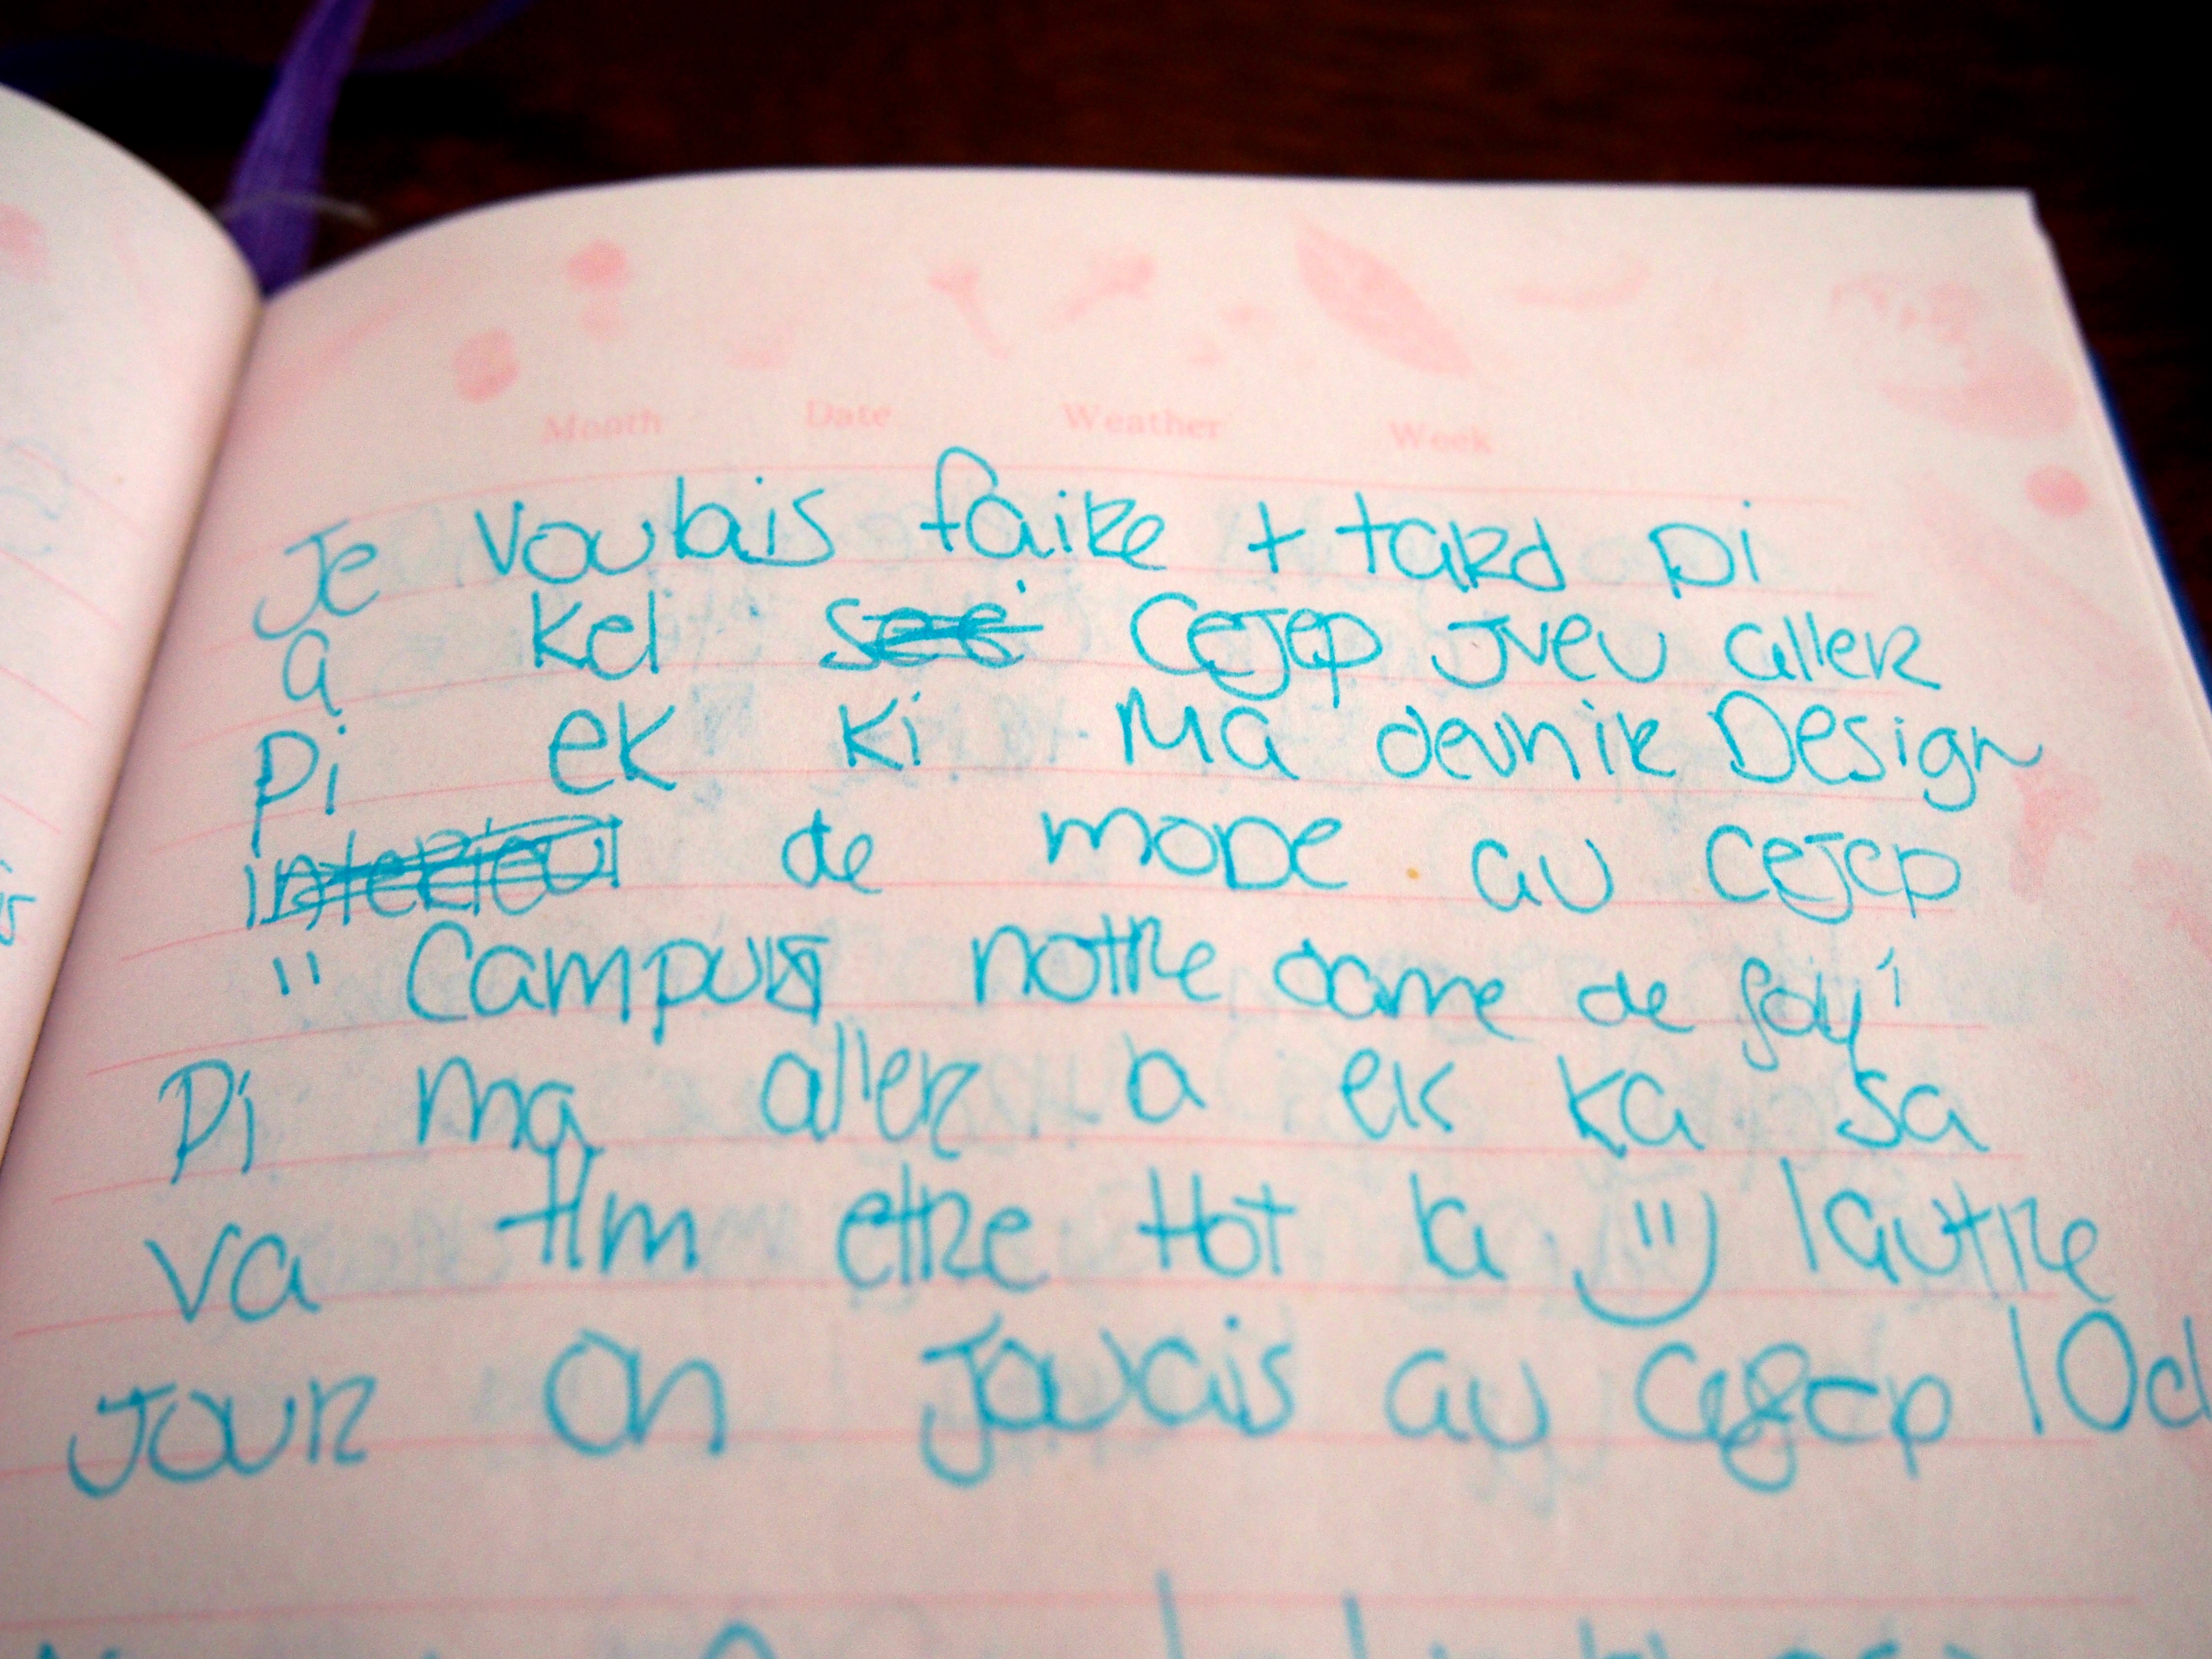 Month Date Weather Week
Je voulais faire + tard pi
a kel cejep jveu aller
pi ek ki ma devnir Design
interieur de mode au cejep
"Campus notre dame de foy"
Pi ma aller a ek ka sa
va tlm etre ttot la ") lautre
jour on javais au cegep